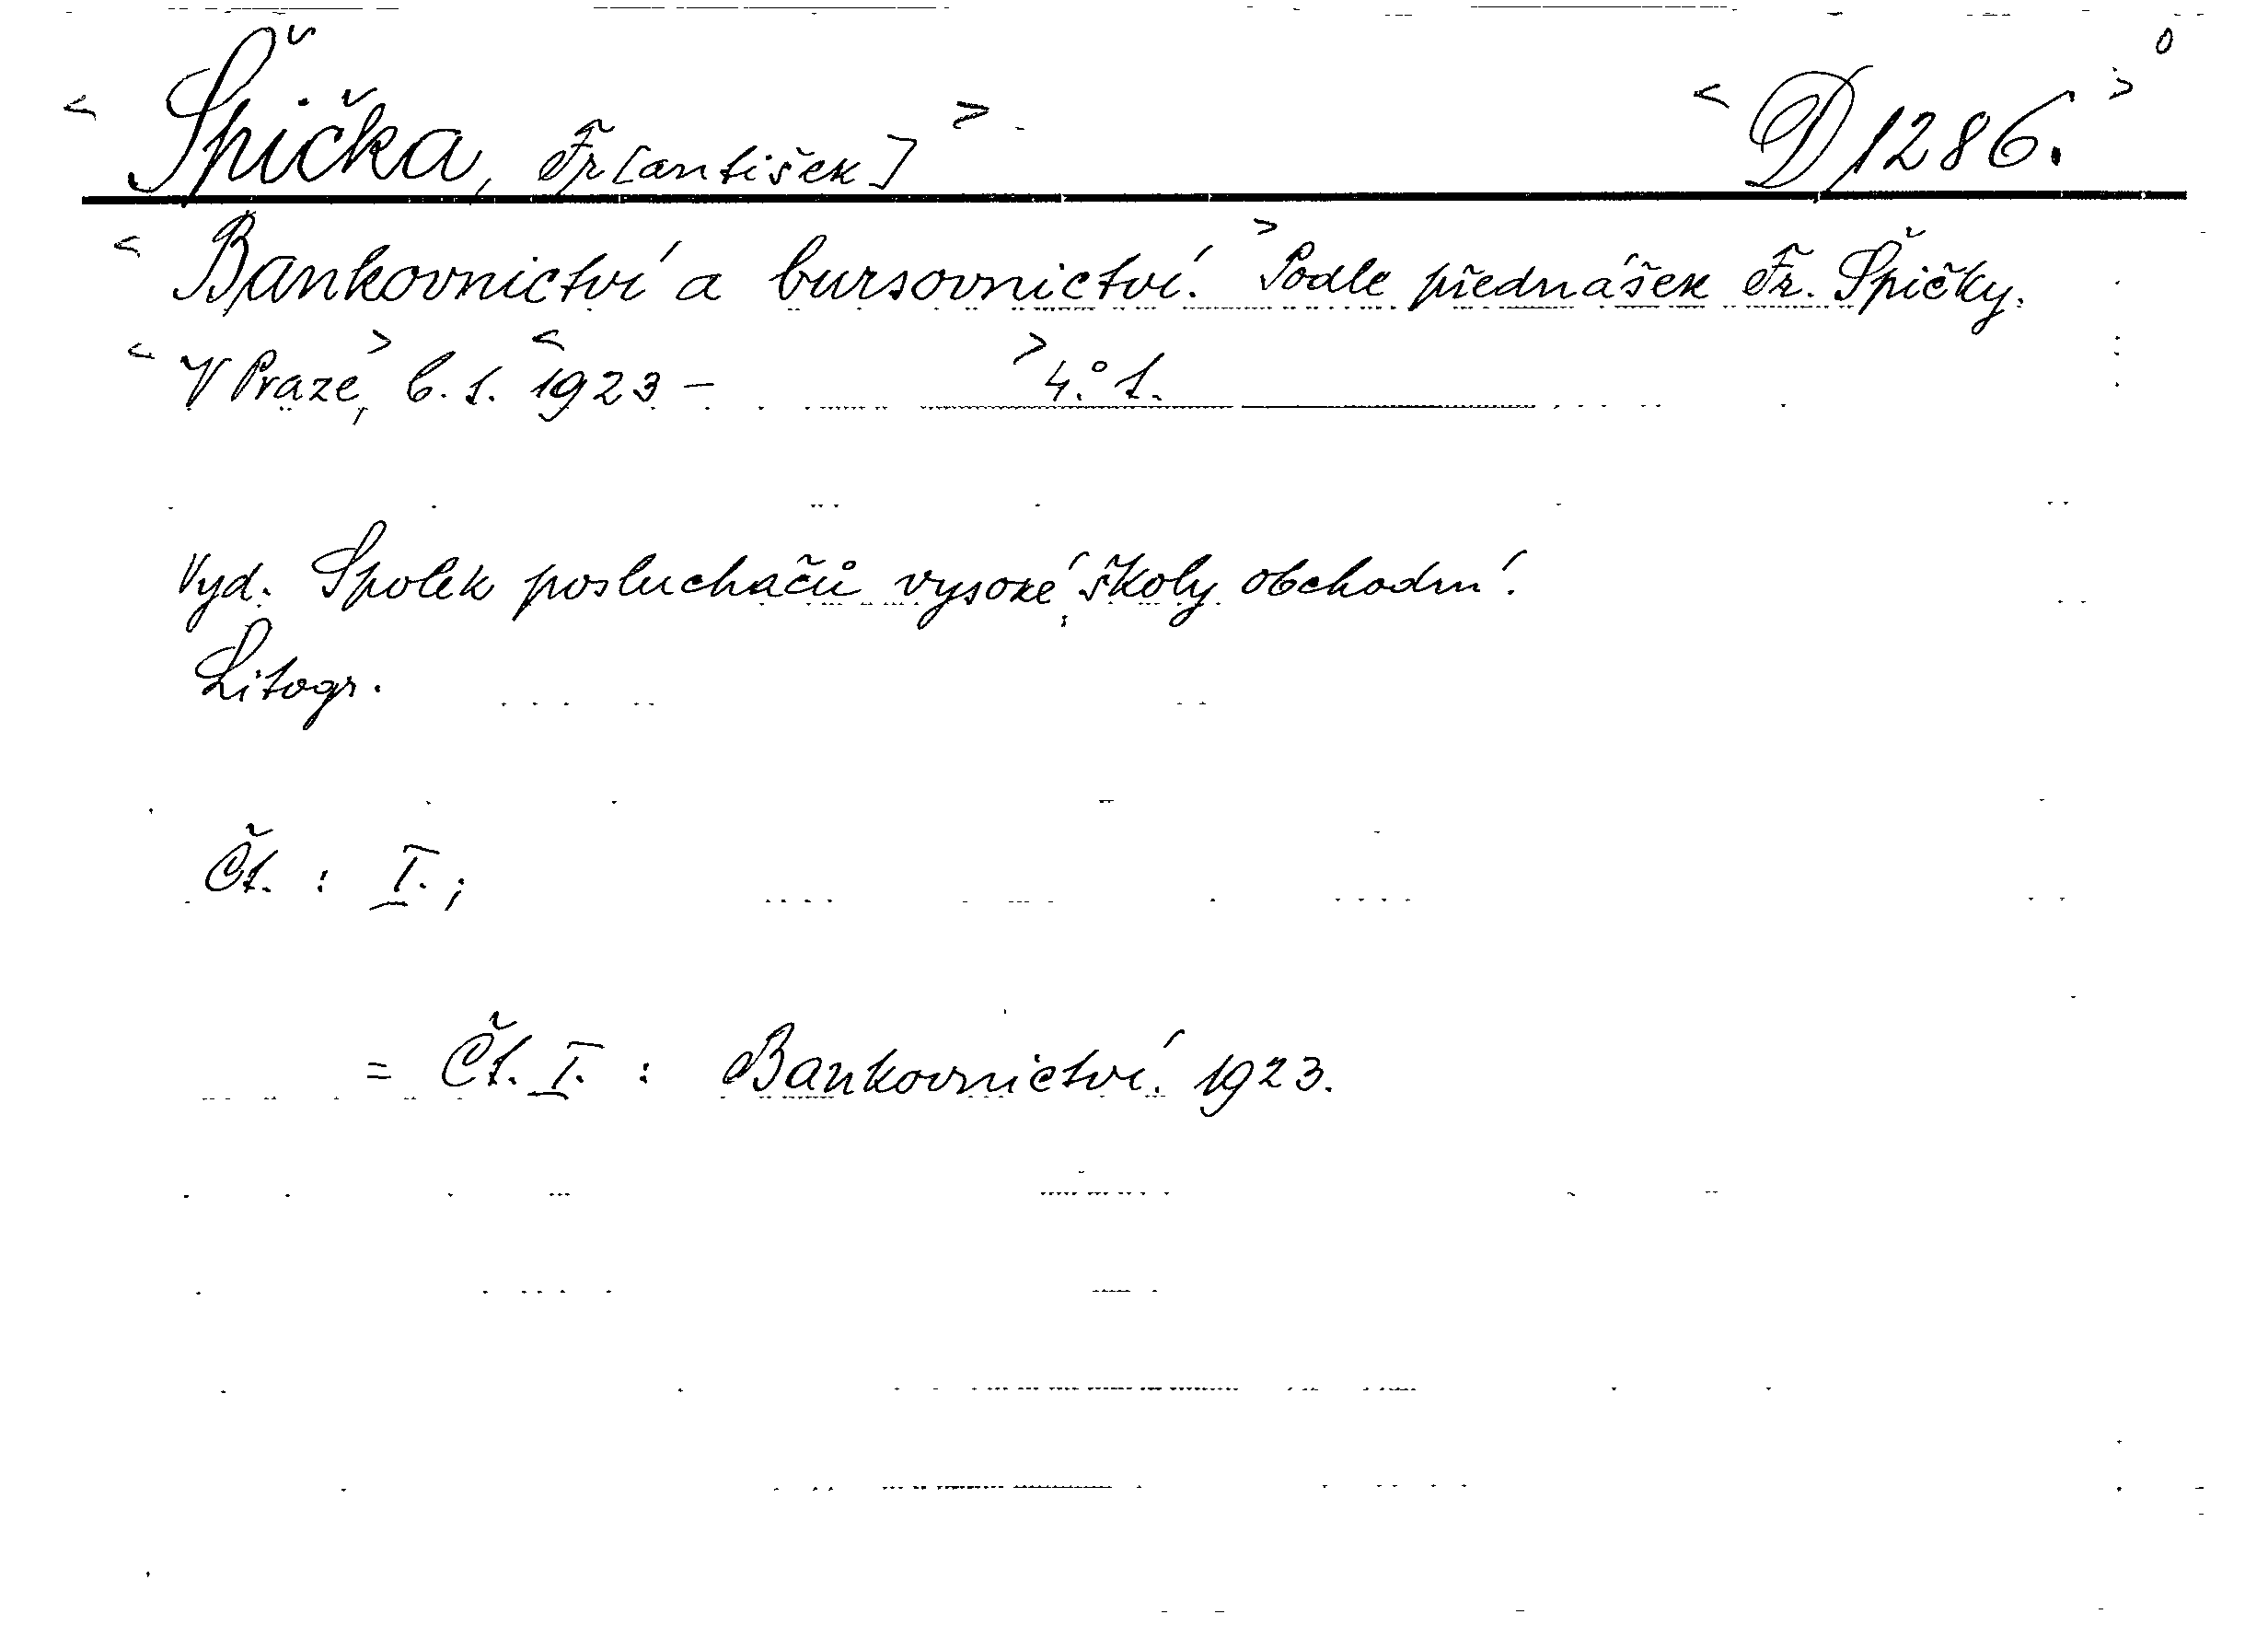 0
< Špička, Fr[antišek] > < D 1286. >
< Bankovnictví a bursovnictví. > Podle přednášek Fr. Špičky.
< V Praze, > b. t. < 1923 – > 4.° 1.
Vyd. Spolek posluchačů vysoké školy obchodní.
Litogr.
Čt. : I. ;
= Čt. I. : Bankovnictví. 1923.